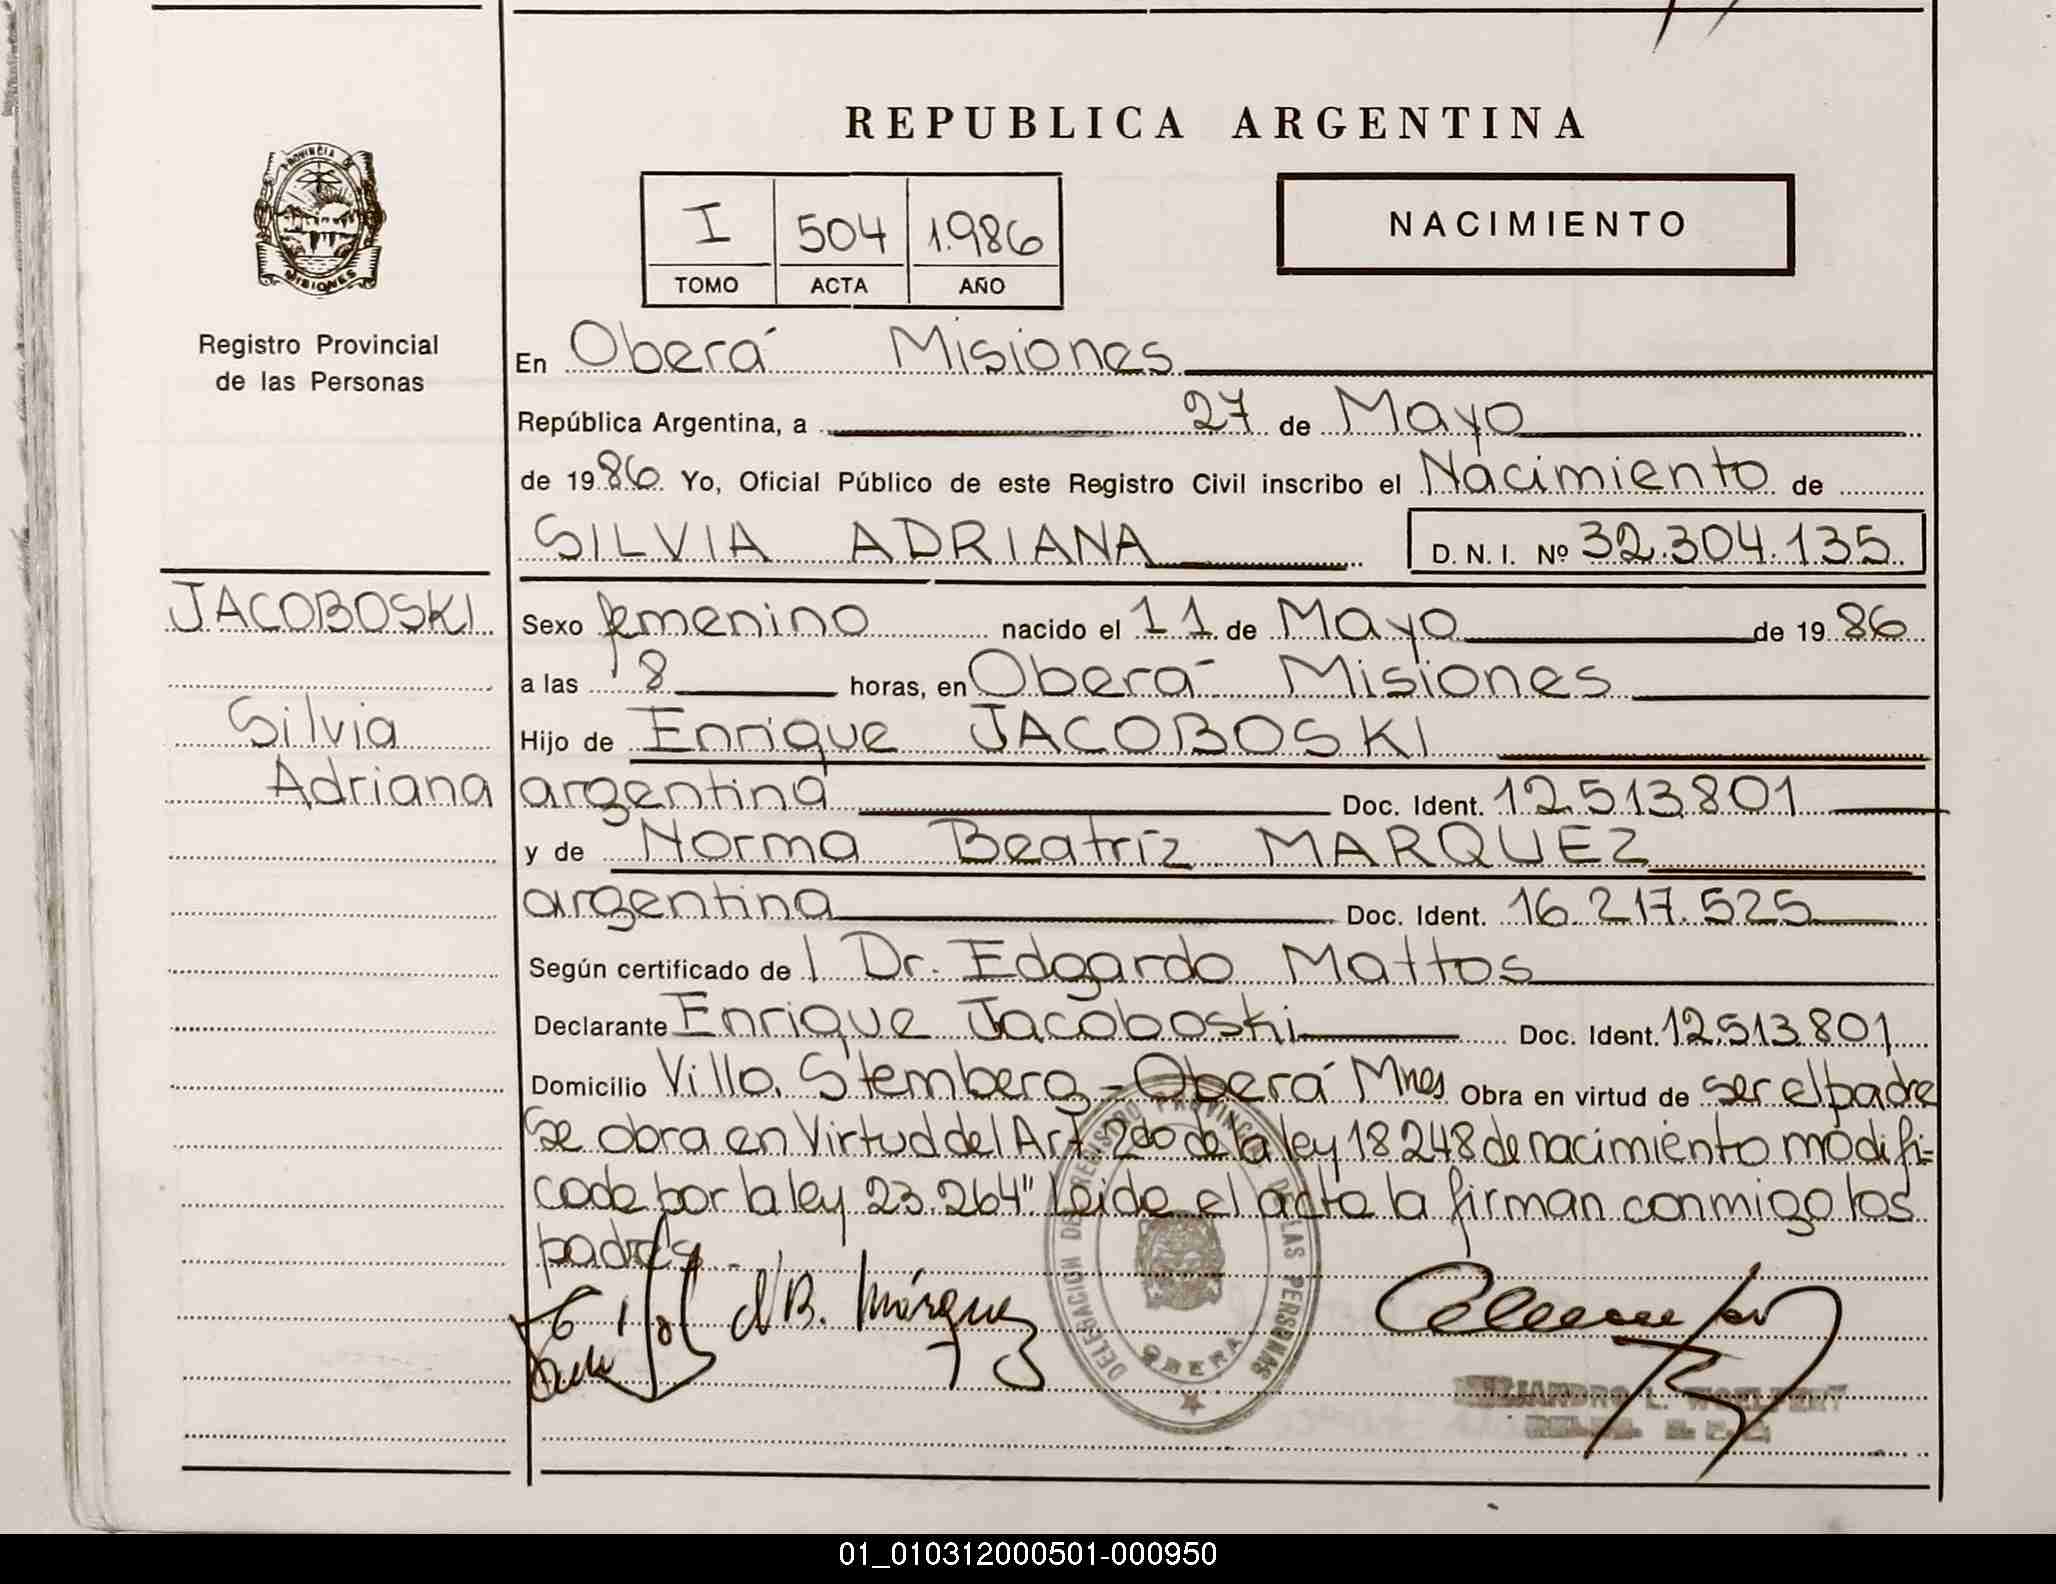 REPUBLICA ARGENTINA
PROVINCIA DE
MISIONES
I 504 1.986
TOMO ACTA AÑO
NACIMIENTO
Registro Provincial
de las Personas
En Oberá Misiones
República Argentina, a 27 de Mayo
de 1986 Yo, Oficial Público de este Registro Civil inscribo el Nacimiento de
SILVIA ADRIANA D.N.I. Nº 32.304.135
JACOBOSKI
Silvia
Adriana
Sexo femenino nacido el 11 de Mayo de 1986
a las 8 horas, en Oberá Misiones
Hijo de Enrique JACOBOSKI
argentina Doc. Ident. 12.513.801
y de Norma Beatríz MARQUEZ
argentina Doc. Ident. 16.217.525
Según certificado de l Dr. Edgardo Mattos
Declarante Enrique Jacoboski Doc. Ident. 12.513.801
Domicilio Villa Stemberg - Oberá Mnes Obra en virtud de ser el padre
Se obra en Virtud del Art. 2do de la ley 18248 de nacimiento modifi=
cada por la ley 23.264" Leida el acta la firman conmigo los
padres.
N B. Márquez
DELEGACION DE REGISTRO PROVINCIAL DE LAS PERSONAS
OBERA
01_010312000501-000950